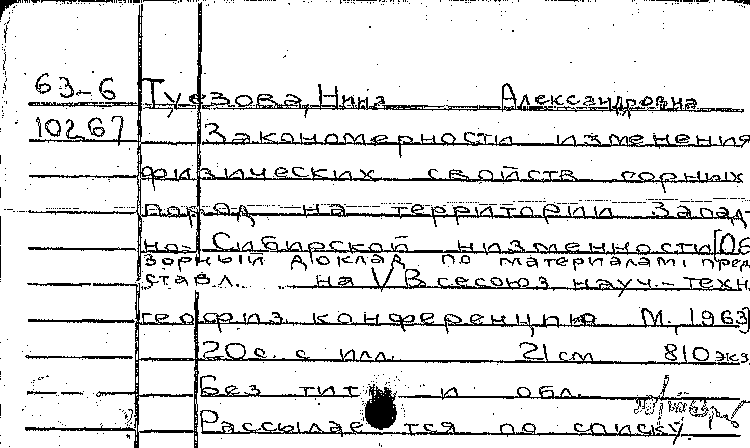 63-6 Туезова, Нина Александровна
10267 Закономерности изменения
физических свойств горных
пород на территории Запад
но-Сибирской низменности [Об
зорный доклад по материалам, пред
ставл. на V Всесоюз науч.-техн
геофиз конференцию М., 1963]
20 с. с илл. 21 см 810 экз
Без тит. и обл.
Рассылается по списку